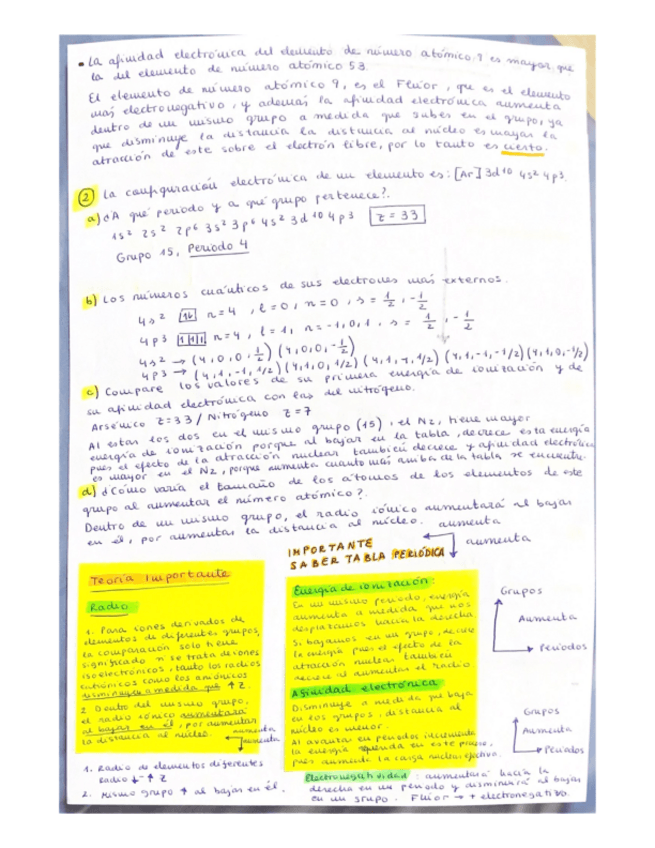 • La afinidad electrónica del elemento de número atómico 9 es mayor que
la del elemento de número atómico 53.
El elemento de número atómico 9, es el Flúor, que es el elemento
más electronegativo, y además la afinidad electrónica aumenta
dentro de un mismo grupo a medida que subes en el grupo, ya
que disminuye la distancia la distancia al núcleo es mayor la
atracción de este sobre el electrón libre, por lo tanto es cierto.
② La configuración electrónica de un elemento es: [Ar] 3d10 4s2 4p3.
a) ¿A qué periodo y a qué grupo pertenece?.
1s2 2s2 2p6 3s2 3p6 4s2 3d10 4p3 Z = 33
Grupo 15, Periodo 4
b) Los números cuánticos de sus electrones más externos.
4s2 n=4, l=0, n=0, s= 1/2, -1/2
4p3 n=4, l=1, n=-1,0,1, s= 1/2, -1/2
4s2 → (4,0,0,1/2) (4,0,0,-1/2)
4p3 → (4,1,-1,1/2) (4,1,0,1/2) (4,1,1,1/2) (4,1,-1,-1/2) (4,1,0,-1/2)
c) Compare los valores de su primera energía de ionización y de
su afinidad electrónica con las del nitrógeno.
Arsénico Z=33 / Nitrógeno Z=7
Al estar los dos en el mismo grupo (15), el N2, tiene mayor
energía de ionización porque al bajar en la tabla, decrece esta energía
pues el efecto de la atracción nuclear también decrece y afinidad electrónica
es mayor en el N2, porque aumenta cuanto más arriba de la tabla se encuentre.
d) ¿Cómo varía el tamaño de los átomos de los elementos de este
grupo al aumentar el número atómico?.
Dentro de un mismo grupo, el radio iónico aumentará al bajar
en él, por aumentar la distancia al núcleo.
aumenta
aumenta
IMPORTANTE
SABER TABLA PERIÓDICA
Teoría Importante
Radio
1. Para iones derivados de
elementos de diferentes grupos,
la comparación solo tiene
significado si se trata de iones
isoelectrónicos, tanto los radios
catiónicos como los aniónicos
disminuyen a medida que ↑ Z.
2. Dentro del mismo grupo,
el radio iónico aumentará
al bajar en él, por aumentar
la distancia al núcleo.
aumenta
aumenta
1. Radio de elementos diferentes
Radio ↓ - ↑ Z
2. Mismo grupo ↑ al bajar en él.
Energía de ionización:
En un mismo periodo, energía
aumenta a medida que nos
desplazamos hacia la derecha.
Si bajamos en un grupo, decrece
la energía pues el efecto de la
atracción nuclear también
decrece al aumentar el radio
Afinidad electrónica
Disminuye a medida que baja
en los grupos, distancia al
núcleo es menor.
Al avanzar en periodos incrementa
la energía en este proceso,
pues aumenta la carga nuclear efectiva.
Electronegatividad: aumentará hacia la
derecha en un periodo y disminuirá al bajar
en un grupo. Flúor → + electronegativo.
Grupos
Aumenta
Periodos
Grupos
Aumenta
Periodos